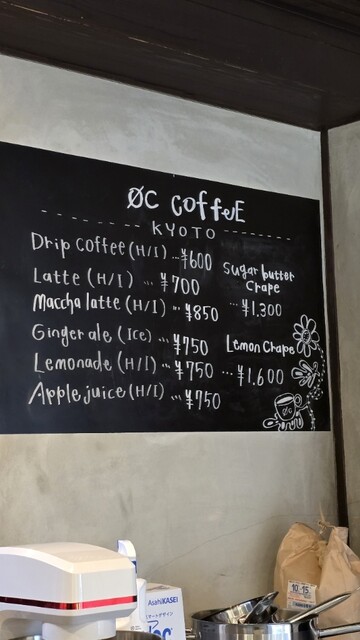 ØC COffEE
KYOTO
Drip coffee (H/I) … ¥600
Latte (H/I) … ¥700
Maccha latte (H/I) … ¥850
Ginger ale (Ice) … ¥750
Lemonade (H/I) … ¥750
Apple juice (H/I) … ¥750
Sugar butter
Crape
… ¥1.300
Lemon Crape
… ¥1.600
ØC
AsahiKASEI
10 15